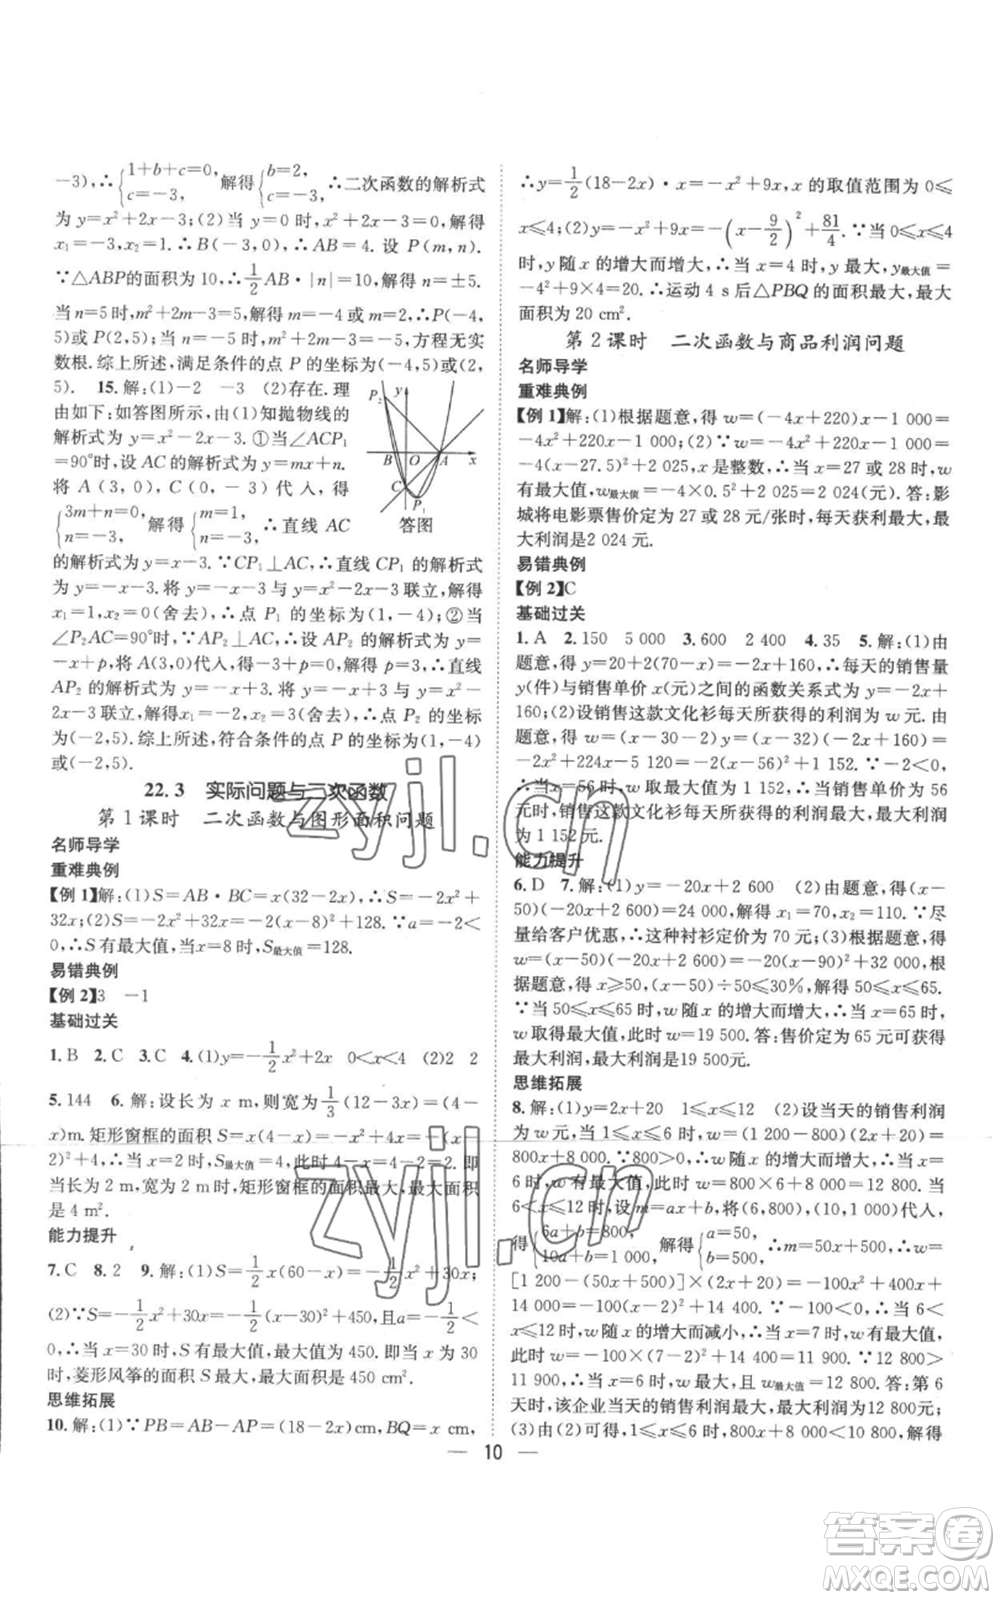 -3),∴{1+b+c=0, c=-3, 解得{b=2, c=-3, ∴二次函数的解析式
为 y=x²+2x-3;(2)当 y=0 时,x²+2x-3=0,解得
x₁=-3,x₂=1.∴B(-3,0),∴AB=4.设 P(m,n).
∵△ABP的面积为 10,∴1/2 AB·|n|=10,解得 n=±5.
当 n=5时,m²+2m-3=5,解得 m=-4 或 2,∴P(-4,
5)或(2,5);当 n=-5时,m²+2m-3=-5,方程无实
数根.综上所述,满足条件的点 P 的坐标为(-4,5)或(2,
5). 15.解:(1)-2 -3 (2)存在.理
由如下:如答图所示,由(1)知抛物线的
解析式为 y=x²-2x-3.①当∠ACP₁
=90°时,设 AC 的解析式为 y=mx+n.
将 A(3,0),C(0,-3)代入,得
{3m+n=0, n=-3, 解得{m=1, n=-3, ∴直线 AC
P₂ y B O A x C P₁
答图
的解析式为 y=x-3.∵CP₁⊥AC,∴直线 CP₁ 的解析式
为 y=-x-3.将 y=-x-3 与 y=x²-2x-3联立,解得
x₁=1,x₂=0(舍去),∴点 P₁ 的坐标为(1,-4);②当
∠P₂AC=90°时,∵AP₂⊥AC,∴设 AP₂ 的解析式为 y=
-x+p,将 A(3,0)代入,得-3+p=0,解得 p=3,∴直线
AP₂ 的解析式为 y=-x+3.将 y=-x+3 与 y=x²-
2x-3联立,解得 x₁=-2,x₂=3(舍去),∴点 P₂ 的坐标
为(-2,5).综上所述,符合条件的点 P 的坐标为(1,-4)
或(-2,5).
22.3 实际问题与二次函数
第 1 课时 二次函数与图形面积问题
名师导学
重难典例
【例 1】解:(1)S=AB·BC=x(32-2x),∴S=-2x²+
32x;(2)S=-2x²+32x=-2(x-8)²+128.∵a=-2<
0,∴S 有最大值,当x=8 时,S最大值=128.
易错典例
【例 2】3 -1
基础过关
1.B 2.C 3.C 4.(1)y=-1/2x²+2x 0<x<4 (2)2 2
5.144 6.解:设长为 x m,则宽为1/3(12-3x)=(4-
x)m.矩形窗框的面积 S=x(4-x)=-x²+4x=-(x-
2)²+4.∴当 x=2 时,S最大值=4,此时4-x=4-2=2.即
当长为 2 m,宽为 2 m时,矩形窗框的面积最大,最大面积
是 4 m².
能力提升
7.C 8.2 9.解:(1)S=1/2x(60-x)=-1/2x²+30x;
(2)∵S=-1/2x²+30x=-1/2(x-30)²+450,且a=-1/2<
0,∴当 x=30 时,S 有最大值,最大值为 450.即当 x 为 30
时,菱形风筝的面积 S 最大,最大面积是 450 cm².
思维拓展
10.解:(1)∵PB=AB-AP=(18-2x)cm,BQ=x cm,
∴y=1/2(18-2x)·x=-x²+9x,x 的取值范围为 0≤
x≤4;(2)y=-x²+9x=-(x-9/2)²+81/4.∵当 0≤x≤4
时,y 随 x 的增大而增大,∴当 x=4 时,y 最大,y最大值=
-4²+9×4=20.∴运动 4 s 后△PBQ 的面积最大,最大
面积为 20 cm².
第 2 课时 二次函数与商品利润问题
名师导学
重难典例
【例 1】解:(1)根据题意,得 w=(-4x+220)x-1 000=
-4x²+220x-1 000;(2)∵w=-4x²+220x-1 000=
-4(x-27.5)²+2 025,x 是整数,∴当 x=27 或 28 时,w
有最大值,w最大值=-4×0.5²+2 025=2 024(元).答:影
城将电影票售价定为 27 或 28 元/张时,每天获利最大,最
大利润是2 024 元.
易错典例
【例 2】C
基础过关
1.A 2.150 5 000 3.600 2 400 4.35 5.解:(1)由
题意,得 y=20+2(70-x)=-2x+160,∴每天的销售量
y(件)与销售单价 x(元)之间的函数关系式为 y=-2x+
160;(2)设销售这款文化衫每天所获得的利润为 w 元.由
题意,得 w=(x-30)y=(x-30)(-2x+160)=
-2x²+220x-4 800=-2(x-55)²+1 250.
∵x≥56,∴当 x=56 时,w 有最大值为 1 152,∴当销售单价为 56
元时,销售这款文化衫每天所获得的利润最大,最大利润
为 1 152 元.
能力提升
6.D 7.解:(1)y=-20x+2 600 (2)由题意,得(x-
50)(-20x+2 600)=24 000,解得 x₁=70,x₂=110.∵尽
量给客户优惠,∴这种衬衫定价为 70 元;(3)根据题意,得
w=(x-50)(-20x+2 600)=-20(x-90)²+32 000.根
据题意,得 x≥50,(x-50)÷50≤30%,∴50≤x≤65.
∵当 50≤x≤65 时,w 随 x 的增大而增大,∴当 x=65 时,
w 取得最大值,此时 w=19 500.答:售价定为 65 元可获得
最大利润,最大利润是19 500元.
思维拓展
8.解:(1)y=2x+20 1≤x≤12 (2)设当天的销售利润
为 w 元.当 1≤x≤6 时,w=(1 200-800)(2x+20)=
800x+8 000.∵800>0,∴w 随 x 的增大而增大,∴当x=6
时,w 有最大值,最大值为 w=800×6+8 000=12 800.当
6<x≤12 时,设 m=ax+b,将(6,800),(10,1 000)代入,
得{6a+b=800, 10a+b=1 000, 解得{a=50, b=500, ∴m=50x+500,∴w=
[1 200-(50x+500)]×(2x+20)=-100x²+400x+
14 000=-100(x-2)²+14 400.∵-100<0,∴当 6<
x≤12 时,w 随 x 的增大而减小,∴当 x=7 时,w 有最大
值,为 w=-100×(7-2)²+14 400=11 900.
∵12 800>11 900,∴当 x=6 时,w 最大,且 w最大值=12 800 元.答:该厂第 6
天时,该企业当天的销售利润最大,最大利润为12 800 元;
(3)由(2)可得,1≤x≤6 时,800x+8 000>10 800,解得
10
zyjl.cn
zyjl.cn
答案卷
MXQE.COM